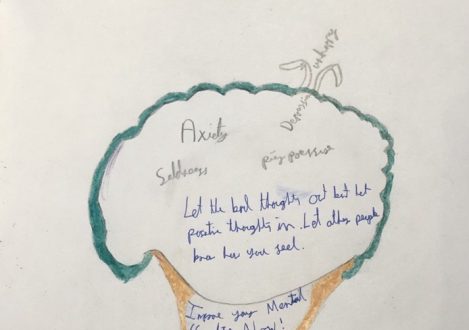 unhappy
Depression
Axiety
Saddness
Let the bad thoughts out but let
positive thoughts in. Let other people
know how you feel.
Improve your Mental
Now!